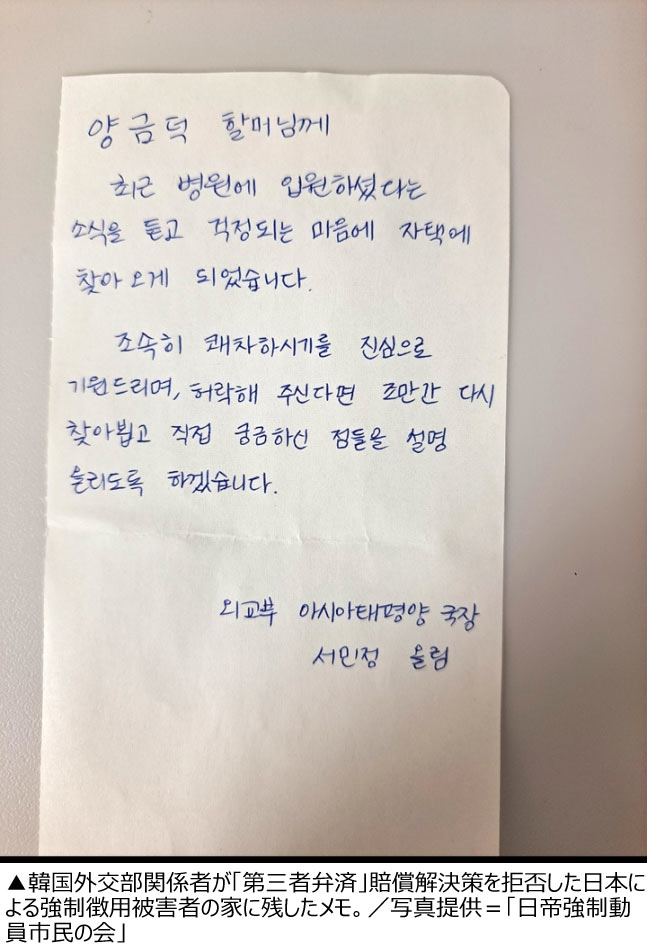 양금덕 할머님께
최근 병원에 입원하셨다는
소식을 듣고 걱정되는 마음에 자택에
찾아오게 되었습니다.
조속히 쾌차하시기를 진심으로
기원드리며, 허락해 주신다면 조만간 다시
찾아뵙고 직접 궁금하신 점들을 설명
올리도록 하겠습니다.
외교부 아시아태평양 국장
서민정 올림
▲韓国外交部関係者が「第三者弁済」賠償解決策を拒否した日本に
よる強制徴用被害者の家に残したメモ。／写真提供＝「日帝強制動
員市民の会」